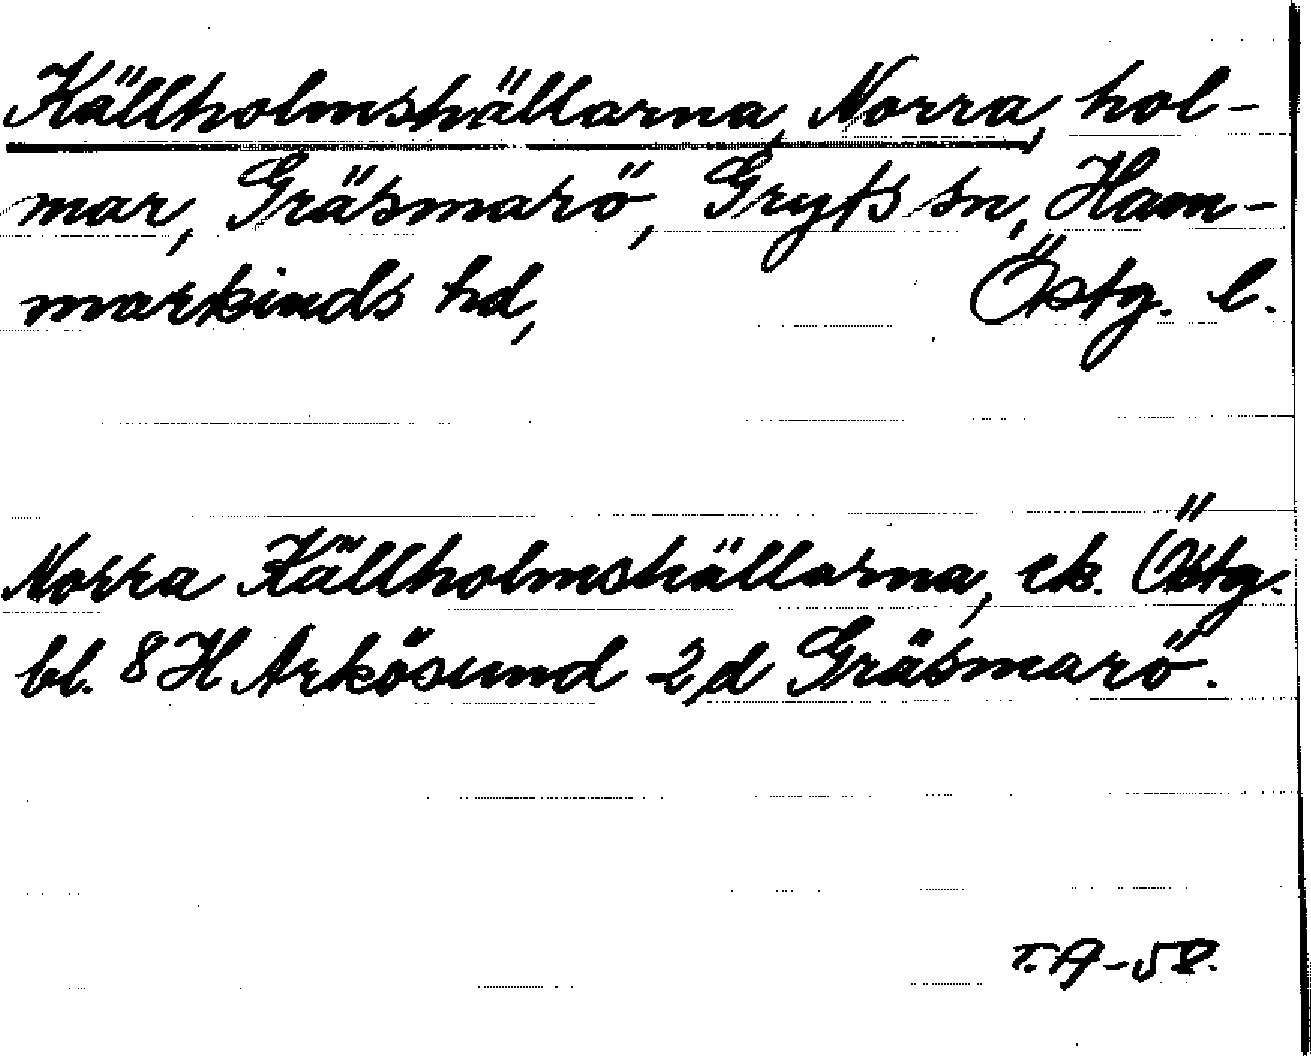 Källholmshällarna, Norra, hol-
mar, Gräsmarö, Gryts sn, Ham-
markinds hd, Östg. l.
Norra Källholmshällarna, ek. Östg.
bl. 8 H Arkösund 2 d Gräsmarö.
T.A-58.